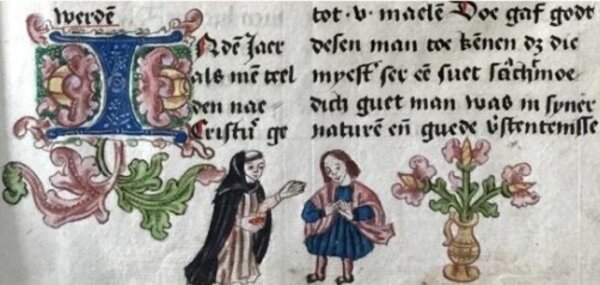 werdē
INdē Jaer
als mē teel
den nae
Cristꝰ ge
tot · v · maelē Doe gaf godt
desen man toe kēnen dʒ die
myestʼ ser eē suet sachtmoe
dich guet man was in syner
naturē eñ guede vʼstentenisse